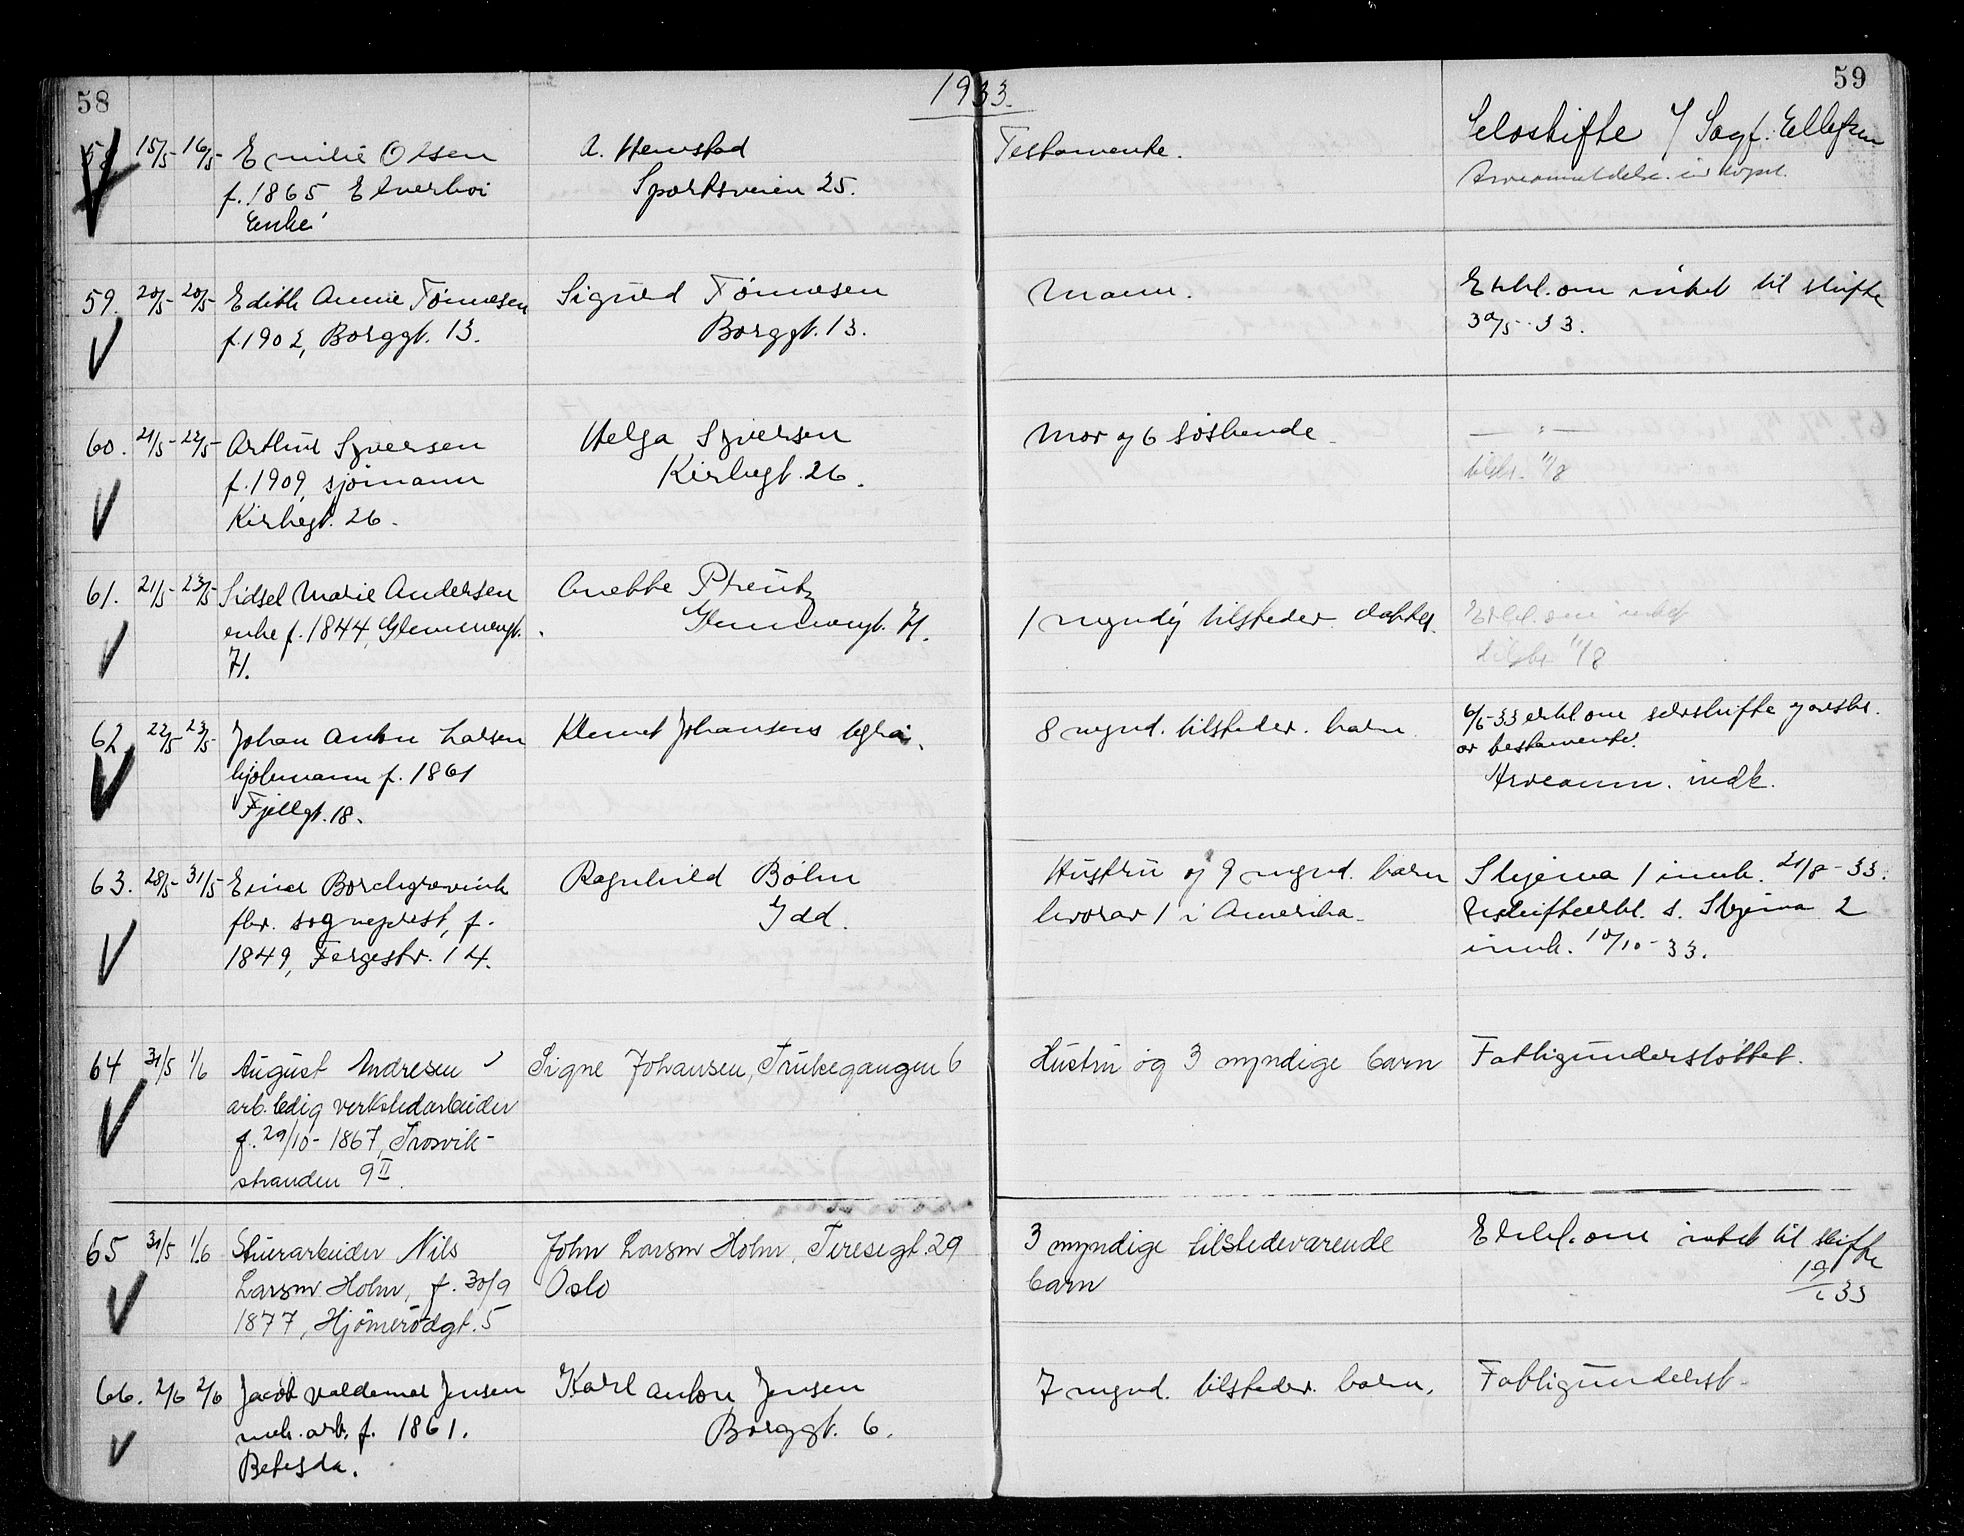 58
1933.
59
58 15/5- 16/5- Emilie Olsen
f. 1865
Enke
A. Hemstad
Sportsveien 25.
Testamente.
Selvskifte v/ Sagf. Ellefsen
59. 20/5- 20/5- Edith Annie Tønnesen
f. 1902, Borggt. 13.
Sigurd Tønnesen
Borggt. 13.
Mann.
Erkl. om intet til skifte
30/5-33.
60. 21/5- 22/5- Arthur Syversen
f. 1909, sjømann
Kirkegt. 26.
Helga Syversen
Kirkegt. 26.
Mor og 6 søskende
— " —
tilskr. 11/8
61. 21/5- 23/5- Sidsel Marie Andersen
enke f. 1844, Glemmengt.
71.
Anette Preutz
Glemmengt. 71.
1 myndig tilsteder. datter.
Erkl. om intet
tilskr 11/8
62 22/5- 23/5- Johan Anton Larsen
f. 1861
Fjellgt. 18.
Klemet Johansens
8 mynd. tilsteder. barn.
6/6-33 erkl om selvskifte
av testamente.
Arveanm. indk.
63. 28/5- 31/5 Einar Borchgrevink
fhv. sogneprest, f.
1849, Fergestr. 14.
Ragnhild Bøhn
Idd.
Hustru og 9 mynd. barn
hvorav 1 i Amerika.
Skjema 1 innk. 21/8-33.
Uskifteerkl. s. Skjema 2
innk. 10/10-33.
64 31/5 1/6 August Andresen
arb.ledig verkstedarbeider
f. 29/10-1867, Trosvik-
stranden 9 II.
Signe Johansen, Trukegangen 6
Hustru og 3 myndige barn
Fattigunderstøttet.
65 31/5 1/6 Stuerarbeider Nils
Larsen Holm, f. 30/9
1877, Hjømerødgt. 5
John Larsen Holm, Teresegt. 29
Oslo
3 myndige tilstedeværende
barn
Erkl. om intet til skifte
19/6 33
66. 2/6 2/6 Jacob Valdemar Jensen
mek. arb. f. 1861.
Betesda.
Karl Anton Jensen
Borggt. 6.
7 mynd. tilsteder. barn.
Fattigunderst.